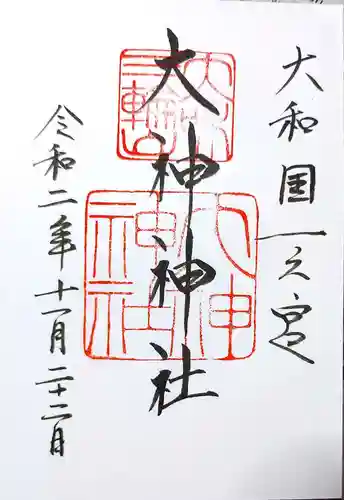 大和国一之宮
大神神社
令和二年十一月二十二日
三輪山
大神神社